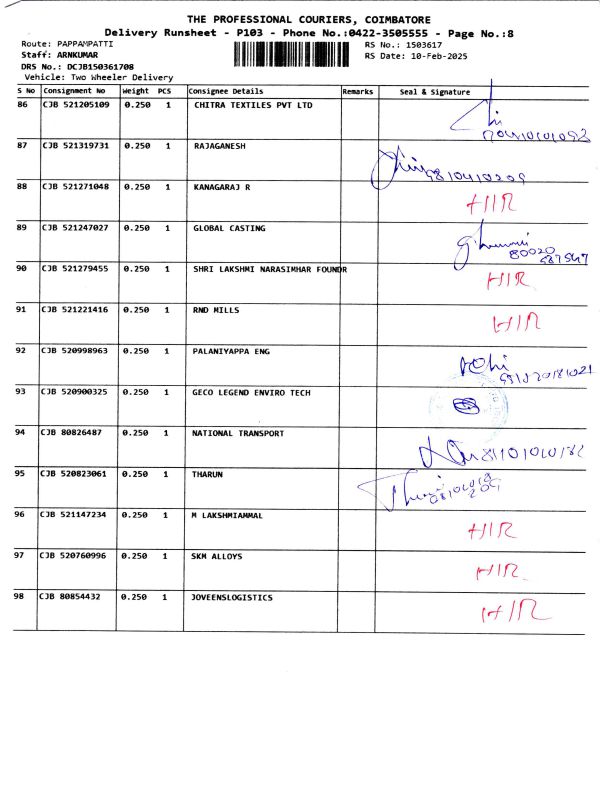 THE PROFESSIONAL COURIERS, COIMBATORE
Delivery Runsheet - P103 - Phone No.:0422-3505555 - Page No.:8
Route: PAPPAMPATTI RS No.: 1503617
Staff: ARNKUMAR RS Date: 10-Feb-2025
DRS No.: DCJB150361708
Vehicle: Two Wheeler Delivery
S No Consignment No Weight PCS Consignee Details Remarks Seal & Signature
86 CJB 521205109 0.250 1 CHITRA TEXTILES PVT LTD
87 CJB 521319731 0.250 1 RAJAGANESH
88 CJB 521271048 0.250 1 KANAGARAJ R HIR
89 CJB 521247027 0.250 1 GLOBAL CASTING
90 CJB 521279455 0.250 1 SHRI LAKSHMI NARASIMHAR FOUNDR HIR
91 CJB 521221416 0.250 1 RND MILLS HIR
92 CJB 520998963 0.250 1 PALANIYAPPA ENG
93 CJB 520900325 0.250 1 GECO LEGEND ENVIRO TECH
94 CJB 80826487 0.250 1 NATIONAL TRANSPORT
95 CJB 520823061 0.250 1 THARUN
96 CJB 521147234 0.250 1 M LAKSHMIAMMAL HIR
97 CJB 520760996 0.250 1 SKM ALLOYS HIR
98 CJB 80854432 0.250 1 JOVEENSLOGISTICS HIR